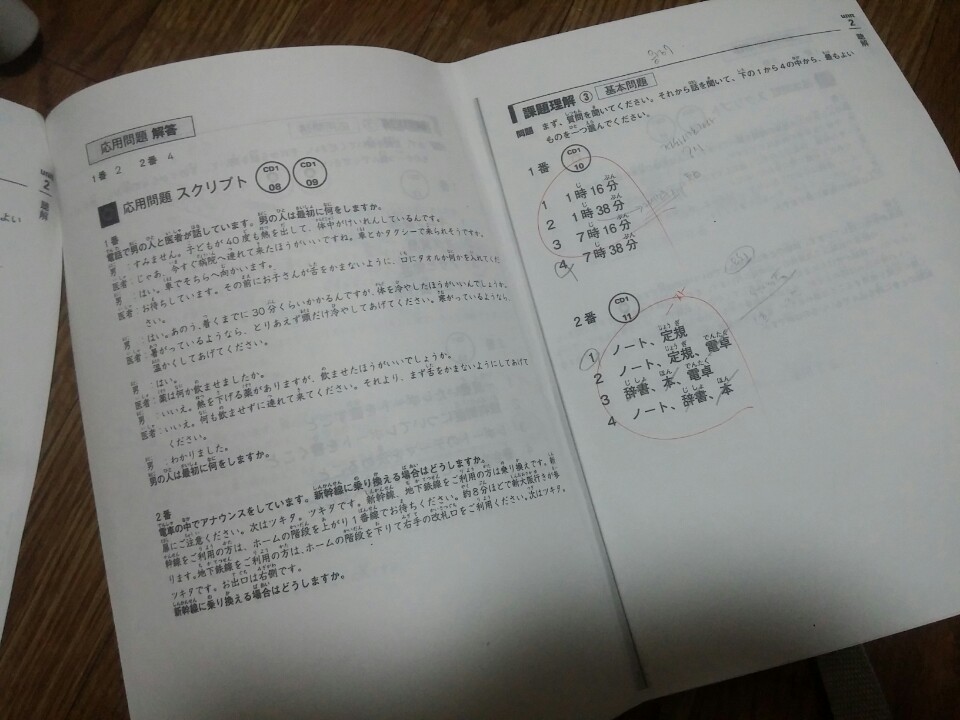 応用問題 解答
1番 2　2番 4
応用問題 スクリプト CD1 08 CD1 09
1番
電話で男の人と医者が話しています。男の人は最初に何をしますか。
男：すみません。子どもが40度も熱を出して、体中がけいれんしているんです。
医者：じゃあ、今すぐ病院へ連れて来たほうがいいですね。車とかタクシーで来られそうですか。
男：はい。車でそちらへ向かいます。
医者：お待ちしています。その前にお子さんが舌をかまないように、口にタオルか何かを入れてくだ
さい。
男：はい。あのう、着くまでに30分くらいかかるんですが、体を冷やしたほうがいいんでしょうか。
医者：暑がっているようなら、とりあえず頭だけ冷やしてあげてください。寒がっているようなら、
温かくしてあげてください。
男：はい。
医者：薬は何か飲ませましたか。
男：いいえ。熱を下げる薬がありますが、飲ませたほうがいいでしょうか。
医者：いいえ。何も飲ませずに連れて来てください。それより、まず舌をかまないようにしてあげて
ください。
男：わかりました。
男の人は最初に何をしますか。
2番
電車の中でアナウンスをしています。新幹線に乗り換える場合はどうしますか。
扉にご注意ください。次はツキタ。ツキタです。新幹線、地下鉄線をご利用の方は乗り換えです。新
幹線をご利用の方は、ホームの階段を上がり1番線でお待ちください。約8分ほどで新大阪行きが参
ります。地下鉄線をご利用の方は、ホームの階段を下りて右手の改札口をご利用ください。次はツキタ。
ツキタです。お出口は右側です。
新幹線に乗り換える場合はどうしますか。
UNIT 2 聴解
課題理解 ③ 基本問題
問題 まず、質問を聞いてください。それから話を聞いて、下の1から4の中から、最もよい
ものを一つ選んでください。
1番 CD1 10
1 1時16分
2 1時38分
3 7時16分
4 7時38分
2番 CD1 11
1 ノート、定規
2 ノート、定規、電卓
3 辞書、本、電卓
4 ノート、辞書、本
UNIT 2 聴解